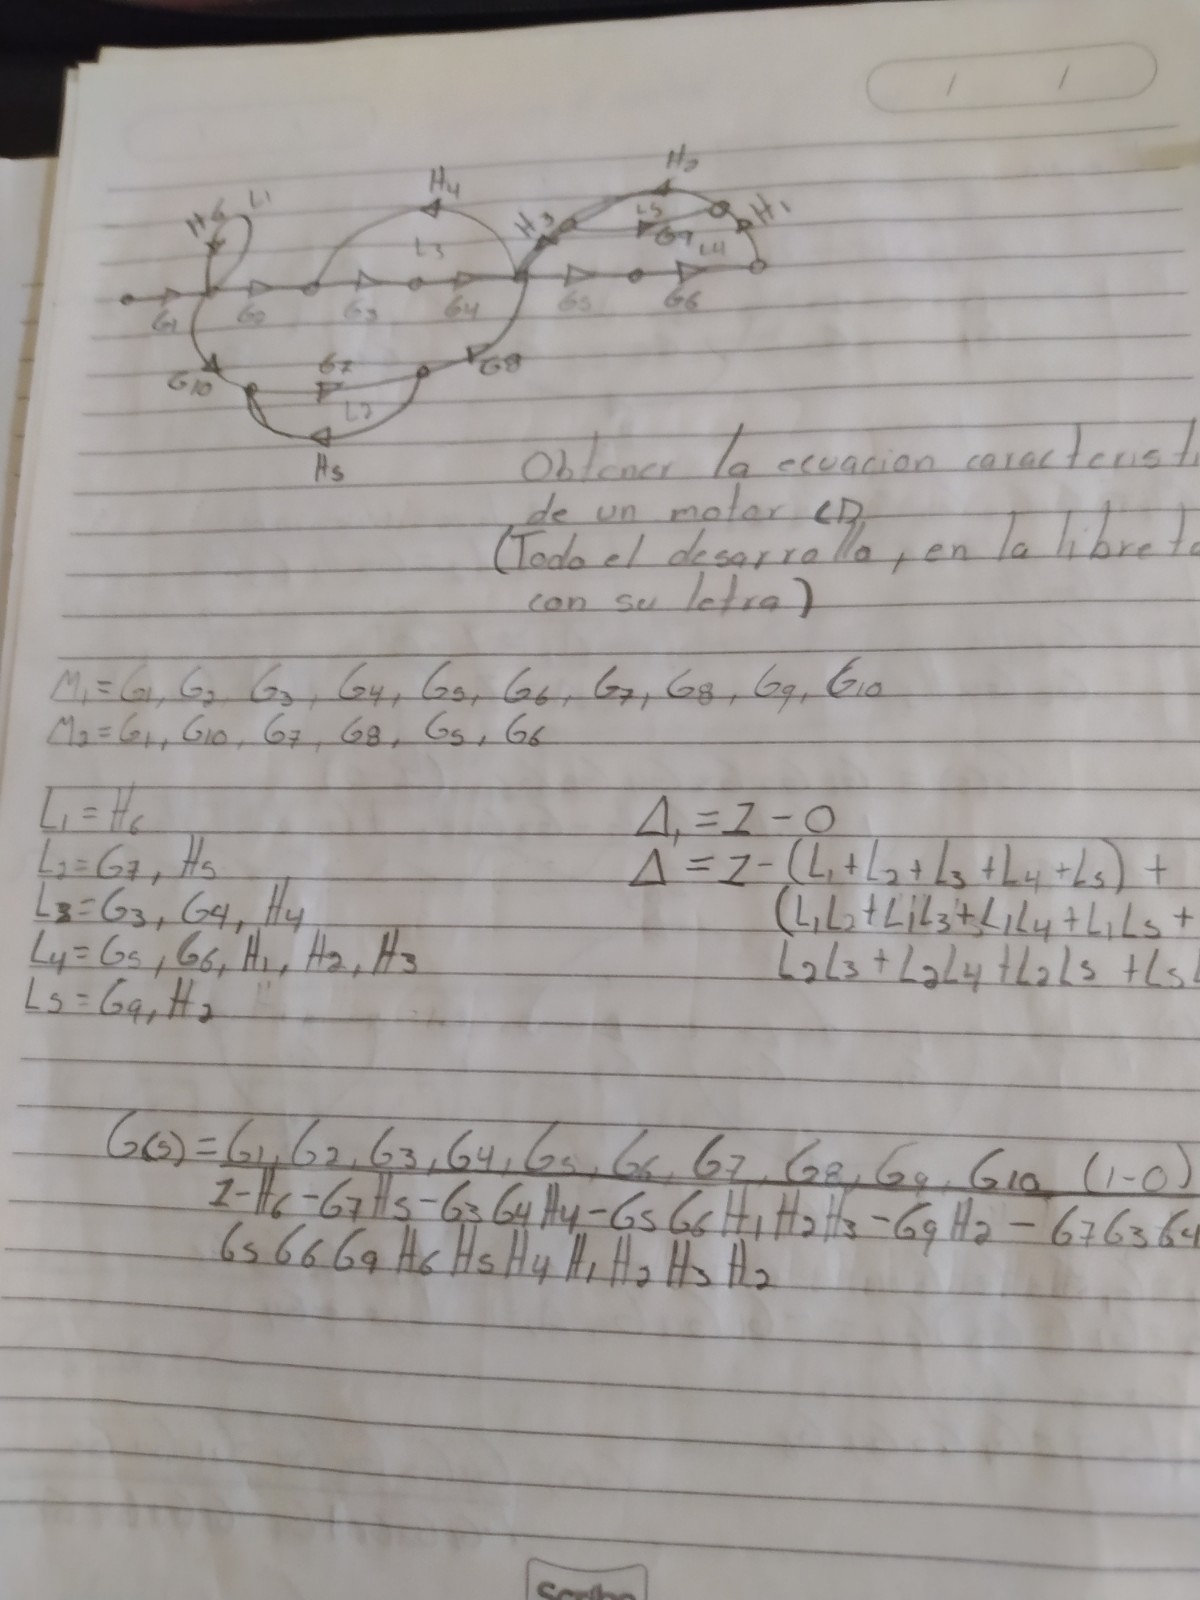 H2
H4
L1
H6
H3
L5
H1
G9
L4
L3
G1
G2
G3
G4
G5
G6
G7
G8
G10
L2
H5
Obtener la ecuacion caracteristi
de un motor CD
(Todo el desarrollo, en la libreta
con su letra)
M1=G1, G2, G3, G4, G5, G6, G7, G8, G9, G10
M2=G1, G10, G7, G8, G5, G6
L1=H6
Δ1 = 1-0
L2=G7, H5
Δ = 1-(L1+L2+L3+L4+L5) +
L3=G3, G4, H4
(L1L2+L1L3+L1L4+L1L5+
L4=G5, G6, H1, H2, H3
L2L3+L2L4+L2L5+L5L
L5=G9, H2
G(s)=G1, G2, G3, G4, G5, G6, G7, G8, G9, G10 (1-0)
1-H6-G7H5-G3G4H4-G5G6H1H2H3-G9H2-G7G3G4
G5G6G9H6H5H4H1H2H3H2
Scribe